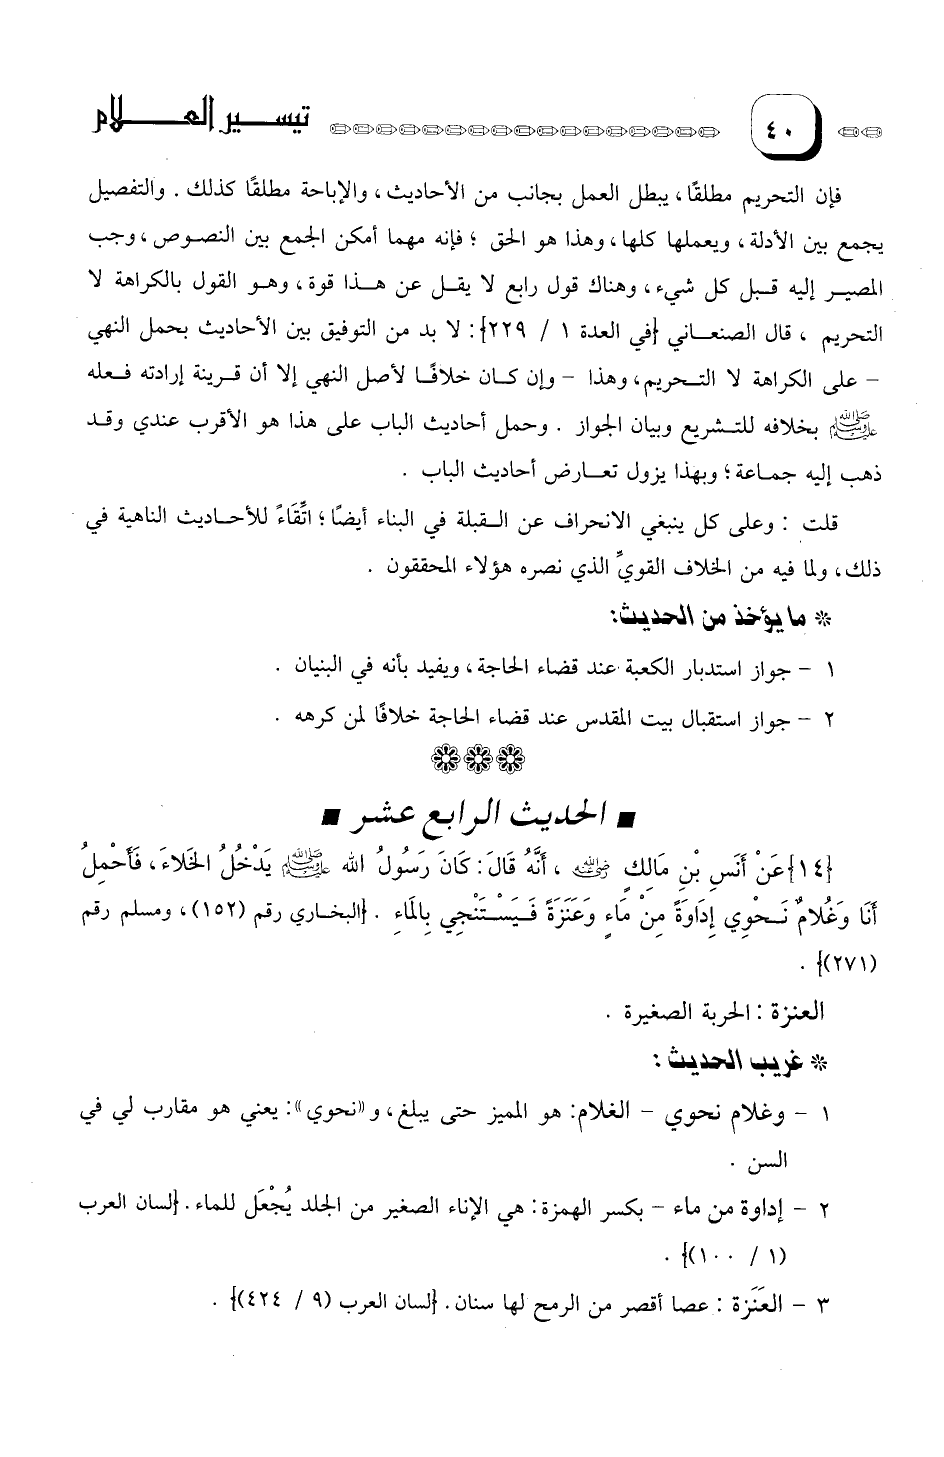 ٤٠ تيسير العلام
فإن التحريم مطلقًا، يبطل العمل بجانب من الأحاديث، والإباحة مطلقًا كذلك . والتفصيل
يجمع بين الأدلة، ويعملها كلها، وهذا هو الحق ؛ فإنه مهما أمكن الجمع بين النصوص، وجب
المصير إليه قبل كل شيء، وهناك قول رابع لا يقل عن هذا قوة، وهو القول بالكراهة لا
التحريم ، قال الصنعاني {في العدة ١ / ٢٢٩}: لا بد من التوفيق بين الأحاديث بحمل النهي
- على الكراهة لا التحريم، وهذا - وإن كان خلافًا لأصل النهي إلا أن قرينة إرادته فعله
ﷺ بخلافه للتشريع وبيان الجواز . وحمل أحاديث الباب على هذا هو الأقرب عندي وقد
ذهب إليه جماعة؛ وبهذا يزول تعارض أحاديث الباب .
قلت : وعلى كل ينبغي الانحراف عن القبلة في البناء أيضًا؛ اتِّقَاءً للأحاديث الناهية في
ذلك، ولما فيه من الخلاف القويِّ الذي نصره هؤلاء المحققون .
* ما يؤخذ من الحديث:
١ - جواز استدبار الكعبة عند قضاء الحاجة، ويفيد بأنه في البنيان .
٢ - جواز استقبال بيت المقدس عند قضاء الحاجة خلافًا لمن كرهه .
■ الحديث الرابع عشر ■
{١٤} عَنْ أَنَسِ بْنِ مَالِكٍ رضي الله عنه ، أَنَّهُ قَالَ: كَانَ رَسُولُ الله ﷺ يَدْخُلُ الخَلاءَ، فَأَحْمِلُ
أَنَا وَغُلَامٌ نَحْوِي إِدَاوَةً مِنْ مَاءٍ وَعَنَزَةً فَيَسْتَنْجِي بِالمَاءِ . {البخاري رقم (١٥٢)، ومسلم رقم
(٢٧١)} .
العنزة : الحربة الصغيرة .
* غريب الحديث :
١ - وغلام نحوي - الغلام: هو المميز حتى يبلغ، و«نحوي»: يعني هو مقارب لي في
السن .
٢ - إداوة من ماء - بكسر الهمزة: هي الإناء الصغير من الجلد يُجْعَل للماء. {لسان العرب
(١ / ١٠٠)} .
٣ - العَنَزة : عصا أقصر من الرمح لها سنان. {لسان العرب (٩ / ٤٢٤)} .